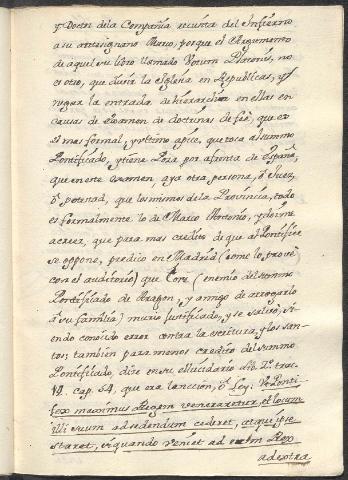 y Doctor de la Compañia recusita del Infierno
a su antesignano Marco, porque el Argumento
de aquel su libro llamado Votum Platonis, no
es otro, que dusir la Iglesia en Republicas, y
negar la entrada de hierarchia en ellas en
causas de examen de doctrinas de feè, que es
el mas formal, y ultimo apice, que toca al summo
Pontificado, y tiene Poza por afrenta de España,
que en este examen, aya otra persona, ò Juez,
ò potestad, que los mismos de la Provincia, todo
es formalmente lo de Marco Antonio, y
a creer, que para mas credito de que al Pontifice
se oppone, predico en Madrid (como lo provè
con el auditorio) que Core (enemio del summo
Pontificado de Aragon, y amigo de arrogarlo
à su familia) murio justificado, y se salvò, si-
endo conocido error contra la escritura, y los san-
tos; tambien para menos credito del summo
Pontificado, dice en su elucidario lib. 2. trac.
14. cap. 54. que era sancion, ò Ley: Ut Ponti-
fex maximus Regem veneraretur, et locum
illi suum ad sedendum cederet, atque ipse
staret, si quando veniet ad eum Rex